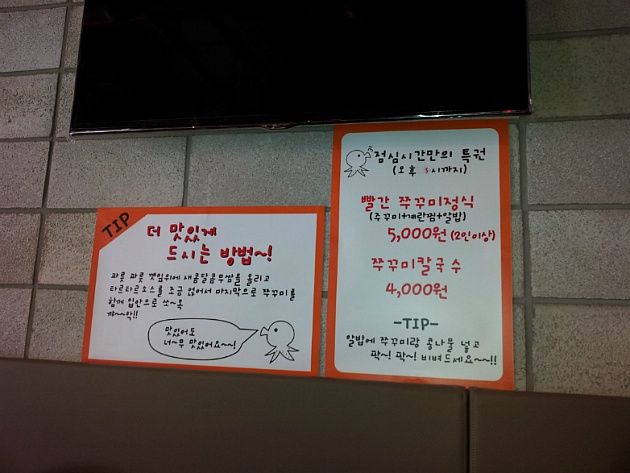 TIP
더 맛있게
드시는 방법~!
파릇 파릇 깻잎위에 새콤달콤무쌈을 올리고
타르타르소스를 조금 얹어서 마지막으로 쭈꾸미를
함께 입안으로 쏘~옥
꺄~~악!!
맛있어도
너~무 맛있어요~~!
점심시간만의 특권
(오후 3시까지)
빨간 쭈꾸미정식
(쭈꾸미+계란찜+알밥)
5,000원 (2인이상)
쭈꾸미칼국수
4,000원
-TIP-
알밥에 쭈꾸미랑 콩나물 넣고
팍~! 팍~! 비벼드세요~~!!